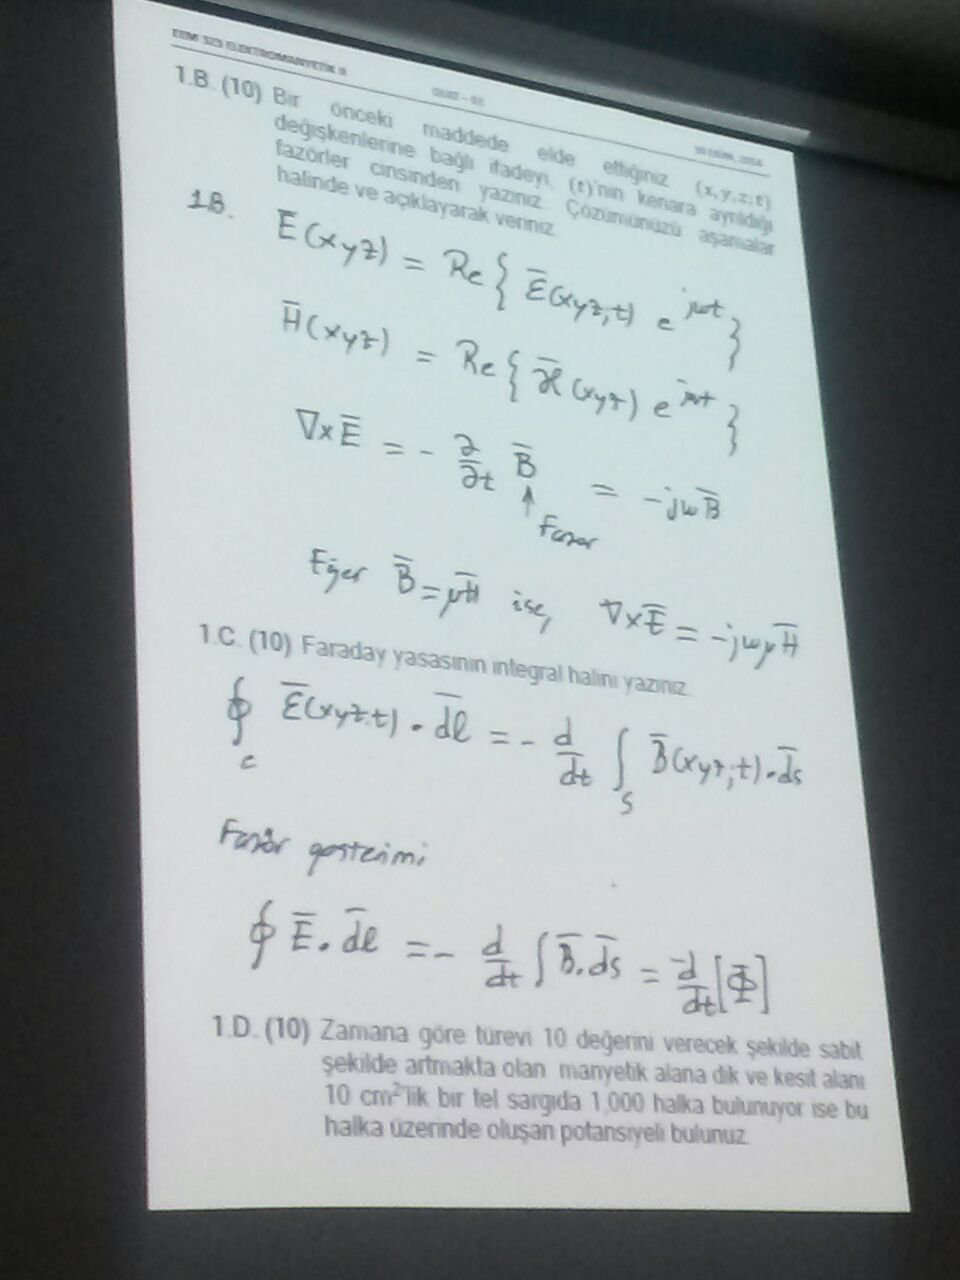 EEM 323 ELEKTROMANYETİK II
QUIZ - 02
1.B. (10) Bir önceki maddede elde ettiğiniz (x, y, z, t)
değişkenlerine bağlı ifadeyi, (t)'nin kenara ayrıldığı
fazörler cinsinden yazınız. Çözümünüzü aşamalar
halinde ve açıklayarak veriniz.
1B. E̅(xyz) = Re{ ℰ̅(xyz,t) e^jωt }
H̅(xyz) = Re{ ℋ̅(xyz) e^jωt }
∇×E̅ = - ∂/∂t B̅ = -jωB̅
↑
Fazör
Eğer B̅=μH̅ ise, ∇×E̅ = -jωμH̅
1.C. (10) Faraday yasasının integral halini yazınız.
∮c ℰ̅(xyz,t) . d̅l = - d/dt ∫s B̅(xyz,t) . d̅s
Fazör gösterimi
∮ E̅. d̅l = - d/dt ∫ B̅. d̅s = -d/dt [Φ]
1.D. (10) Zamana göre türevi 10 değerini verecek şekilde sabit
şekilde artmakta olan manyetik alana dik ve kesit alanı
10 cm²'lik bir tel sargıda 1,000 halka bulunuyor ise bu
halka üzerinde oluşan potansiyeli bulunuz.